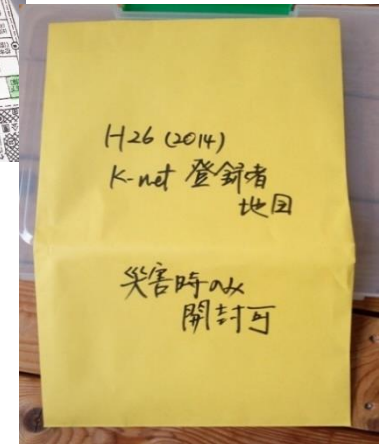 H26 (2014)
K-net 登録者
地図
災害時のみ
開封可